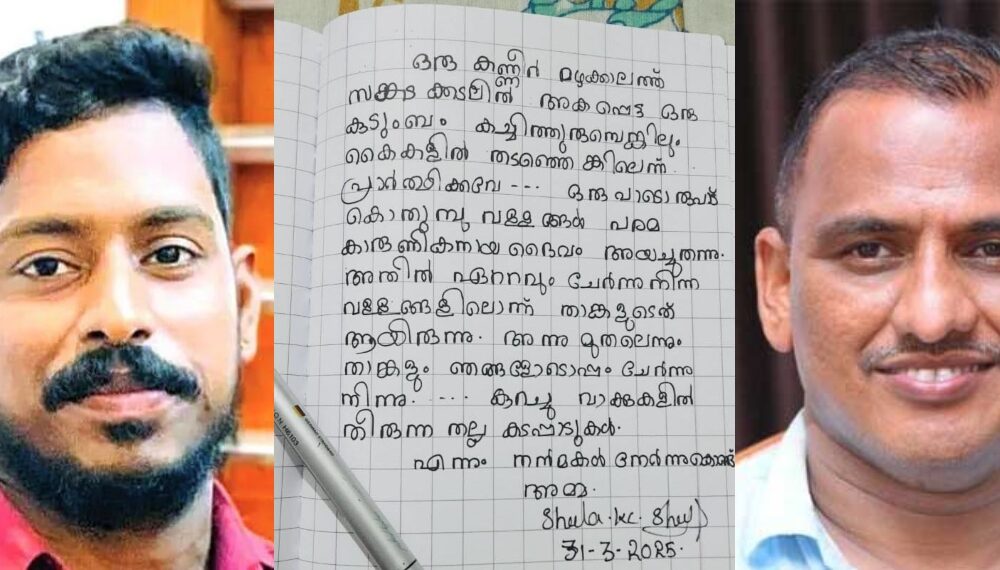 ഒരു കണ്ണീർ മഴക്കാലത്ത്
സങ്കട കടലിൽ അകപ്പെട്ട ഒരു
കുടുംബം കച്ചിത്തുരുമ്പെങ്കിലും
കൈകളിൽ തടഞ്ഞെങ്കിലെന്ന്
പ്രാർത്ഥിക്കവേ --- ഒരുപാടൊരുപട്
കൊതുമ്പു വള്ളങ്ങൾ പരമ
കാരുണികനായ ദൈവം അയച്ചുതന്നു.
അതിൽ ഏറ്റവും ചേർന്നു നിന്ന
വള്ളങ്ങളിലൊന്ന് താങ്കളുടെത്
ആയിരുന്നു. അന്നു മുതലെന്നും
താങ്കളും ഞങ്ങളോടൊപ്പം ചേർന്നു
നിന്നു. ---- കുറച്ചു വാക്കുകളിൽ
തീരുന്നതല്ല കടപ്പാടുകൾ.
എന്നും നന്മകൾ നേർന്നുകൊണ്ട്
അമ്മ.
Sheela.kc.
31-3-2025.